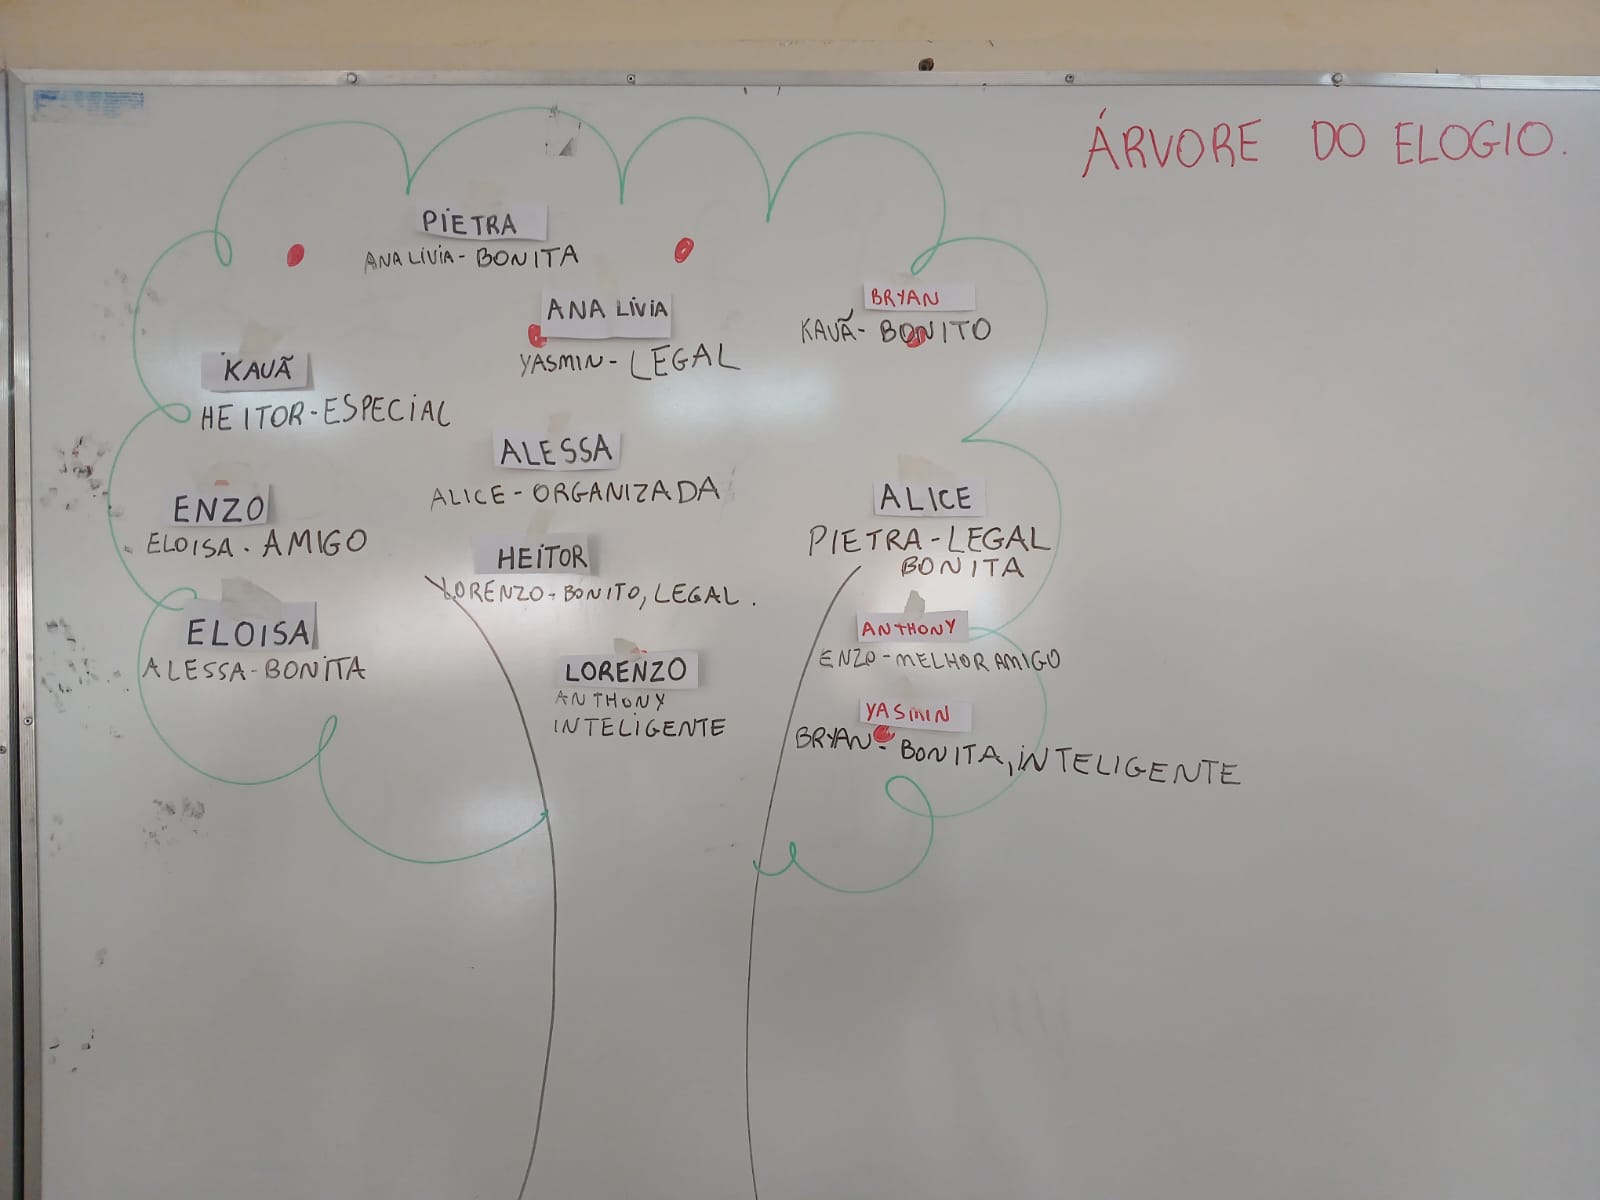 ÁRVORE DO ELOGIO.
PIETRA
ANA LIVIA - BONITA
ANA LIVIA
YASMIN - LEGAL
BRYAN
KAUÃ - BONITO
KAUÃ
HEITOR - ESPECIAL
ALESSA
ALICE - ORGANIZADA
ENZO
ELOISA. AMIGO
ALICE
PIETRA - LEGAL
BONITA
HEITOR
LORENZO - BONITO, LEGAL.
ELOISA
ALESSA - BONITA
LORENZO
ANTHONY
INTELIGENTE
ANTHONY
ENZO - MELHOR AMIGO
YASMIN
BRYAN - BONITA, INTELIGENTE